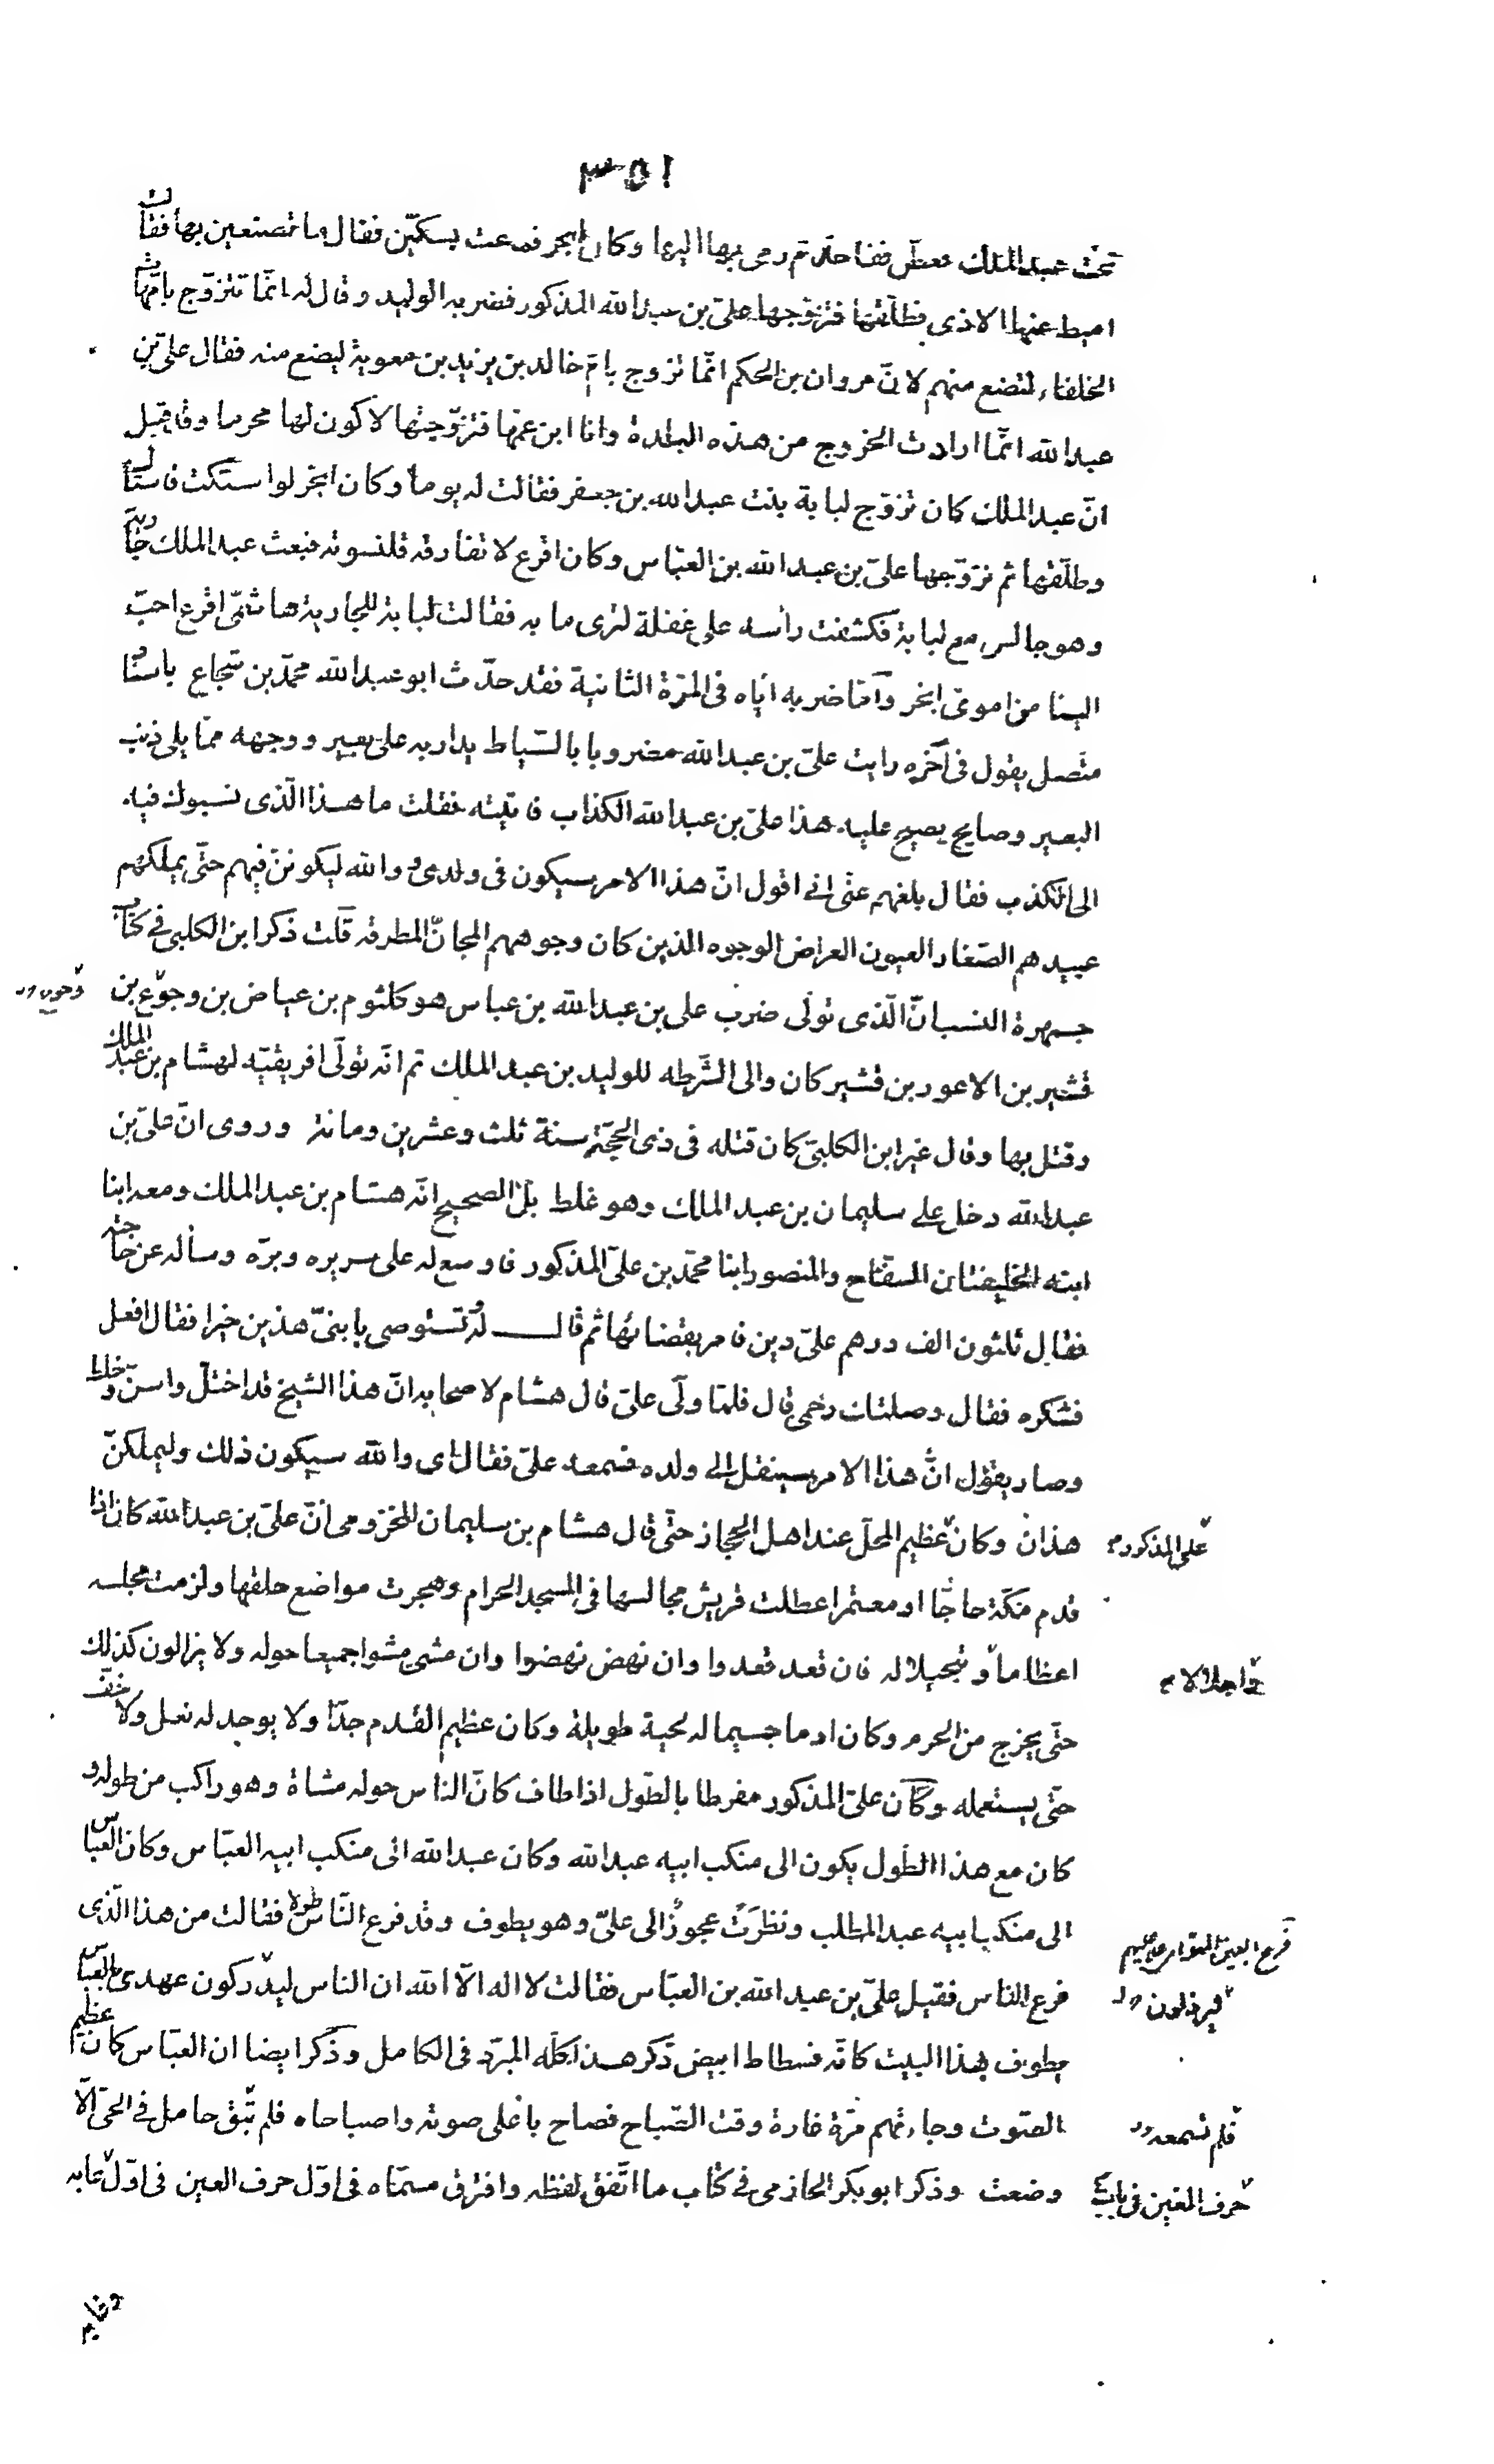 ٣٥١
تحت عبد الملك فعض تفاحة ثم رمى بها اليها وكان ابخر فدعت بسكين فقال ما تصنعين بها فقالت
اميط عنها الاذى فطلقها فتزوجها على بن عبد الله المذكور فضربه الوليد وقال له انما تتزوج بامهات
الخلفاء لتضع منهم لان مروان بن الحكم انما تزوج بام خالد بن يزيد بن معوية ليضع منه فقال على بن
عبد الله انما ارادت الخروج من هذه البلدة وانا ابن عمها فتزوجتها لاكون لها محرما وقد قيل
ان عبد الملك كان تزوج لبابة بنت عبد الله بن جعفر فقالت له يوما وكان ابخر لو استكت فاستاك
وطلقها ثم تزوجها على بن عبد الله بن العباس وكان اقرع لا تفارقه قلنسوته فبعث عبد الملك جارية
وهو جالس مع لبابة فكشفت رأسه على غفلة لترى ما به فقالت لبابة للجارية هاشمى اقرع احب
الينا من اموى ابخر وأما ضربه اياه فى المرة الثانية فقد حدث ابو عبد الله محمد بن شجاع باسناد
متصل يقول فى آخره رايت على بن عبد الله مضروبا بالسياط يدار به على بعير ووجهه مما يلى ذنب
البعير وصايح يصيح عليه هذا على بن عبد الله الكذاب فاتيته فقلت ما هذا الذى نسبوك فيه
الى الكذب فقال بلغهم عنى انى اقول ان هذا الامر سيكون فى ولدى ووالله ليكونن فيهم حتى يملكهم
عبيدهم الصغار العيون العراض الوجوه الذين كان وجوههم المجان المطرقه قلت ذكر ابن الكلبى فى كتاب
جمهرة النسب ان الذى تولى ضرب على بن عبد الله بن عباس هو كلثوم بن عياض بن وجوع بن
قشير بن الاعور بن قشير كان والى الشرطه للوليد بن عبد الملك ثم انه تولى افريقيه لهشام بن عبد الملك
وقتل بها وقال غير ابن الكلبى كان قتله فى ذى الحجة سنة ثلث وعشرين ومائة وروى ان على بن
عبد الله دخل على سليمان بن عبد الملك وهو غلط بل الصحيح انه هشام بن عبد الملك ومعه ابنا
ابنه الخليفتان السفاح والمنصور ابنا محمد بن على المذكور فاوسع له على سريره وبره وسأله عن حاجته
فقال ثلثون الف درهم على دين فامر بقضائها ثم قال له وتستوصى بابنى هذين خيرا فقال افعل
فشكره فقال وصلتك رحمى قال فلما ولى على قال هشام لاصحابه ان هذا الشيخ قد اختل واسن وخلط
وصار يقول ان هذا الامر سينقل الى ولده فسمعه على فقال اى والله سيكون ذلك وليملكن
هذان وكان عظيم المحل عند اهل الحجاز حتى قال هشام بن سليمان المخزومى ان على بن عبد الله كان اذا
على المذكور
قدم مكة حاجا او معتمرا عطلت قريش مجالسها فى المسجد الحرام وهجرت مواضع حلقها ولزمت مجلسه
اعظاما وتبجيلا له فان قعد قعدوا وان نهض نهضوا وان مشى مشوا جميعا حوله ولا يزالون كذلك
واجلالا
حتى يخرج من الحرم وكان ادما جسيما له لحية طويلة وكان عظيم القدم جدا ولا يوجد له نعل ولا خف
حتى يستعمله وكان على المذكور مفرطا بالطول اذا طاف كان الناس حوله مشاة وهو راكب من طوله و
كان مع هذا الطول يكون الى منكب ابيه عبد الله وكان عبد الله الى منكب ابيه العباس وكان العباس
الى منكب ابيه عبد المطلب ونظرت عجوز الى على وهو يطوف وقد فرع الناس طولا فقالت من هذا الذى
فرع الناس فقيل على بن عبد الله بن العباس فقالت لا اله الا الله ان الناس ليدركون عهدى بالعباس
ليرذلون
يطوف بهذا البيت كانه فسطاط ابيض ذكر هذا كله المبرد فى الكامل وذكر ايضا ان العباس كان عظيم
الصوت وجاءتهم مرة غارة وقت الصباح فصاح باعلى صوته واصباحاه فلم تبق حامل فى الحى الا
فلم تسمعه
وضعت وذكر ابو بكر الحازمى فى كتاب ما اتفق لفظه وافترق مسماه فى اول حرف العين فى اول غابه
حرف الغين فى باب